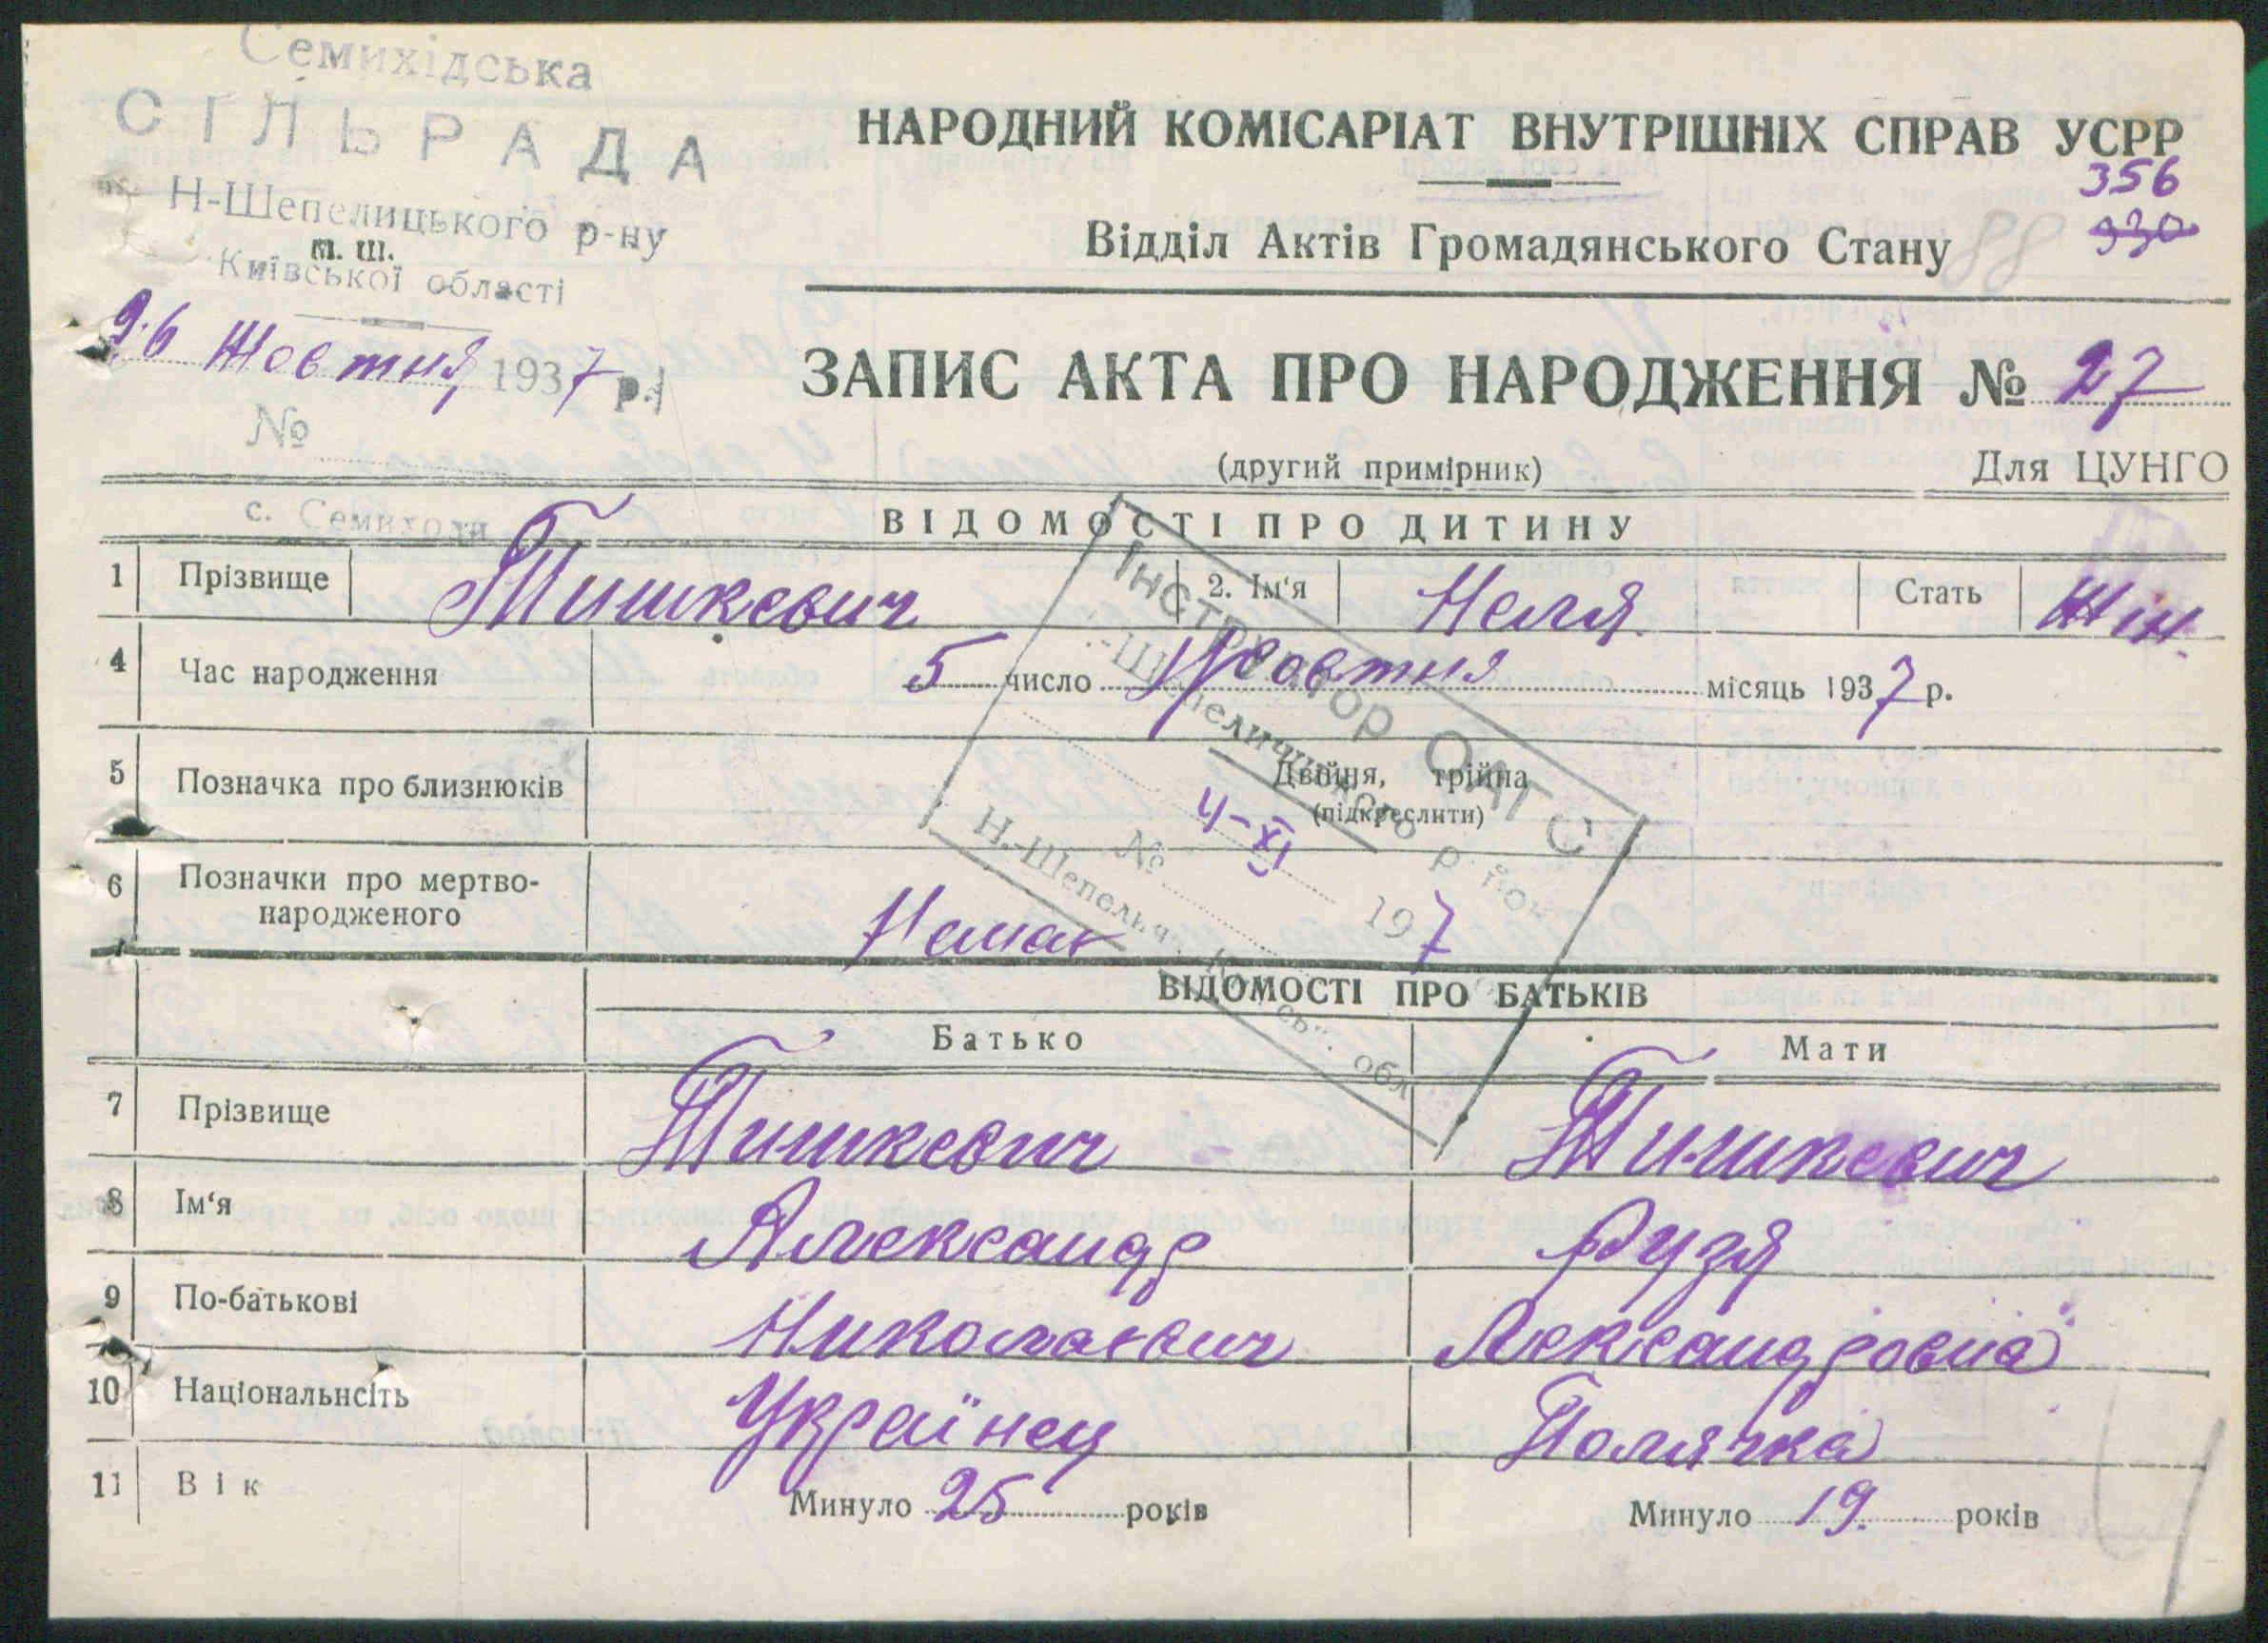 Семихідська
СІЛЬРАДА
Н-Шепелицького р-ну
м. ш.
Київської області
26 Жовтня 1937 р.
№
с. Семиходи
НАРОДНИЙ КОМІСАРІАТ ВНУТРІШНІХ СПРАВ УСРР
356
930
Відділ Актів Громадянського Стану 88
ЗАПИС АКТА ПРО НАРОДЖЕННЯ № 27
(другий примірник) Для ЦУНГО
ВІДОМОСТІ ПРО ДИТИНУ
1 Прізвище Тишкевич 2. Ім'я Неля Стать Жін.
4 Час народження 5 число Жовтня місяць 1937 р.
5 Позначка про близнюків Двійня, трійна
(підкреслити)
6 Позначки про мертво-
народженого Немає
Інструктор ОАГС
Н.-Шепелицького район
4-XI 1937
№
Н.-Шепеличі, обл.
ВІДОМОСТІ ПРО БАТЬКІВ
Батько Мати
7 Прізвище Тишкевич Тишкевич
8 Ім'я Александр Рузя
9 По-батькові Николаевич Александровна
10 Національнсіть Українец Полячка
11 Вік Минуло 25 років Минуло 19. років